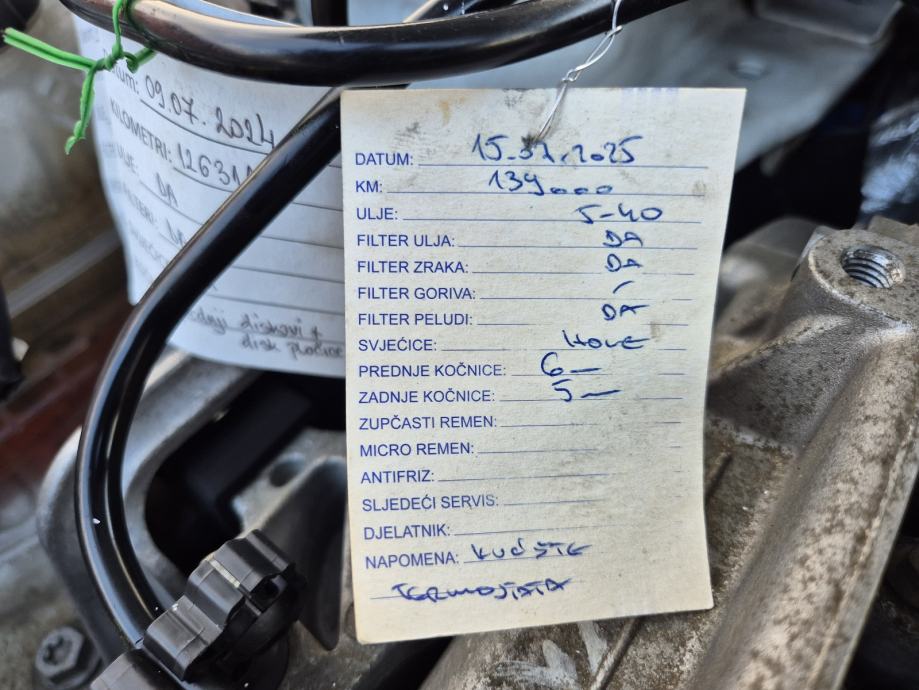 Datum: 09.07.2024
KILOMETRI: 12631
ULJE: DA
diskovi +
disk pločice
DATUM: 15.07.2025
KM: 139000
ULJE: 5-40
FILTER ULJA: DA
FILTER ZRAKA: DA
FILTER GORIVA: /
FILTER PELUDI: DA
SVJEĆICE: NOVE
PREDNJE KOČNICE: 6-
ZADNJE KOČNICE: 5-
ZUPČASTI REMEN:
MICRO REMEN:
ANTIFRIZ:
SLJEDEĆI SERVIS:
DJELATNIK:
NAPOMENA: KUĆIŠTE
TERMOSTATA